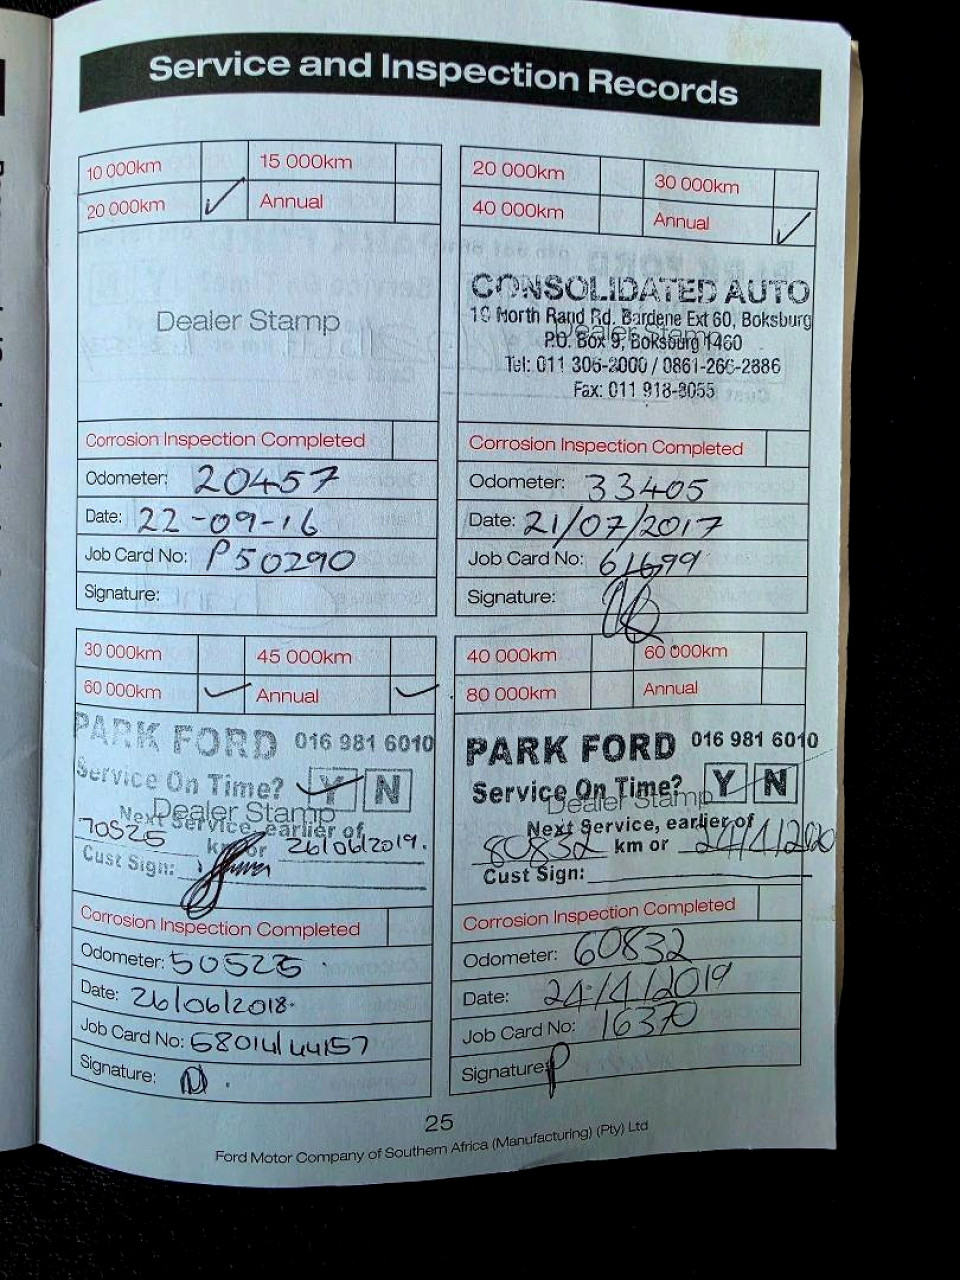 Service and Inspection Records
10 000km 15 000km
20 000km ✓ Annual
Dealer Stamp
Corrosion Inspection Completed
Odometer: 20457
Date: 22-09-16
Job Card No: P50290
Signature:
20 000km 30 000km
40 000km Annual ✓
CONSOLIDATED AUTO
19 North Rand Rd. Bardene Ext 60, Boksburg
Dealer Stamp
P.O. Box 9, Boksburg 1460
Tel: 011 306-2000 / 0861-266-2886
Fax: 011 918-8055
Corrosion Inspection Completed
Odometer: 33405
Date: 21/07/2017
Job Card No: 61699
Signature:
30 000km 45 000km
60 000km ✓ Annual ✓
PARK FORD 016 981 6010
Service On Time? Y N
Dealer Stamp
Next Service, earlier of
70525 km or 26/06/2019.
Cust Sign:
Corrosion Inspection Completed
Odometer: 50525
Date: 26/06/2018.
Job Card No: 68014/44157
Signature:
40 000km 60 000km
80 000km Annual
PARK FORD 016 981 6010
Service On Time? Y N
Dealer Stamp
Next Service, earlier of
80832 km or 24/4/2020
Cust Sign:
Corrosion Inspection Completed
Odometer: 60832
Date: 24/4/2019
Job Card No: 16370
Signature:
25
Ford Motor Company of Southern Africa (Manufacturing) (Pty) Ltd